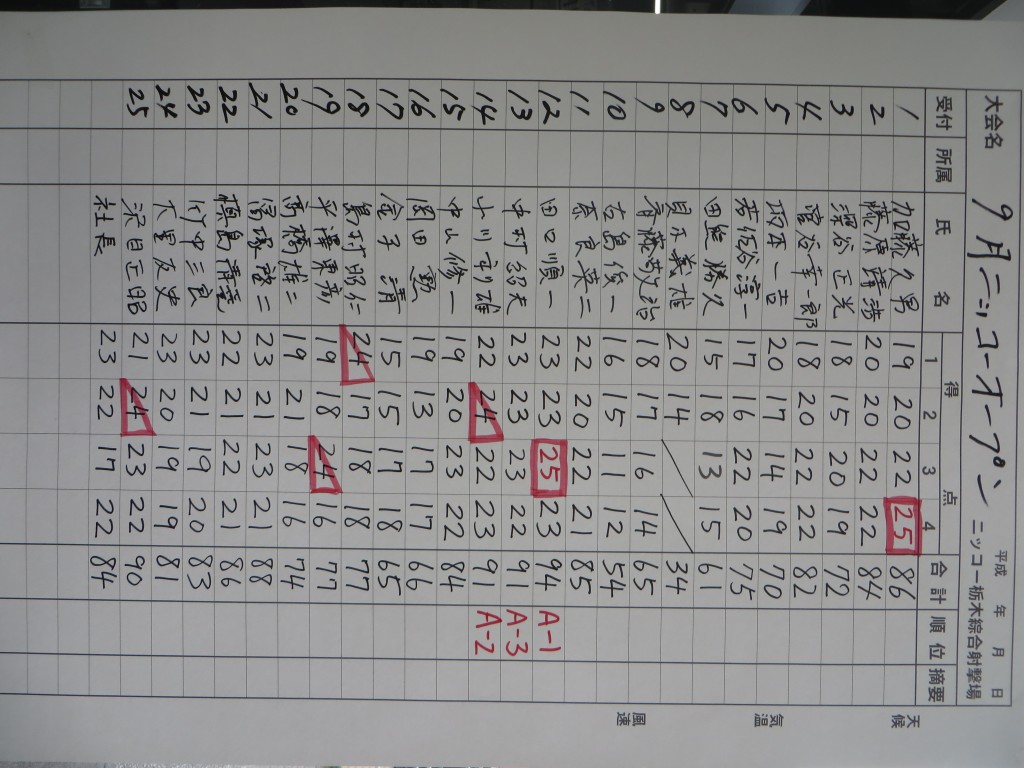 大会名 9月ニッコーオープン 平成 年 月 日
ニッコー栃木綜合射撃場
受付 所属 氏名 得点 1 2 3 4 合計 順位 摘要
1 加藤久男 19 20 22 25 86
2 藤原 20 20 22 22 84
3 澤谷正光 18 15 20 19 72
4 菅谷幸一郎 18 20 22 22 82
5 坂本一吉 20 17 14 19 70
6 若佐淳一 17 16 22 20 75
7 田熊勝久 15 18 13 15 61
8 貝 義雄 20 14 / / 34
9 齊藤敬治 18 17 16 14 65
10 古島俊一 16 15 11 12 54
11 奈良英二 22 20 22 21 85
12 田口順一 23 23 25 23 94 A-1
13 中村紹夫 23 23 23 22 91 A-3
14 小川 雄 22 24 22 23 91 A-2
15 中山修一 19 20 23 22 84
16 園田勲 19 13 17 17 66
17 金子清 15 15 17 18 65
18 島村昭仁 24 17 18 18 77
19 平澤東彦 19 18 24 16 77
20 高橋雄二 19 21 18 16 74
21 塚 二 23 21 23 21 88
22 槙島清 22 21 22 21 86
23 竹中三良 23 21 19 20 83
24 大里友史 23 20 19 19 81
25 沢目正昭 21 24 23 22 90
社長 23 22 17 22 84
天候
気温
風速